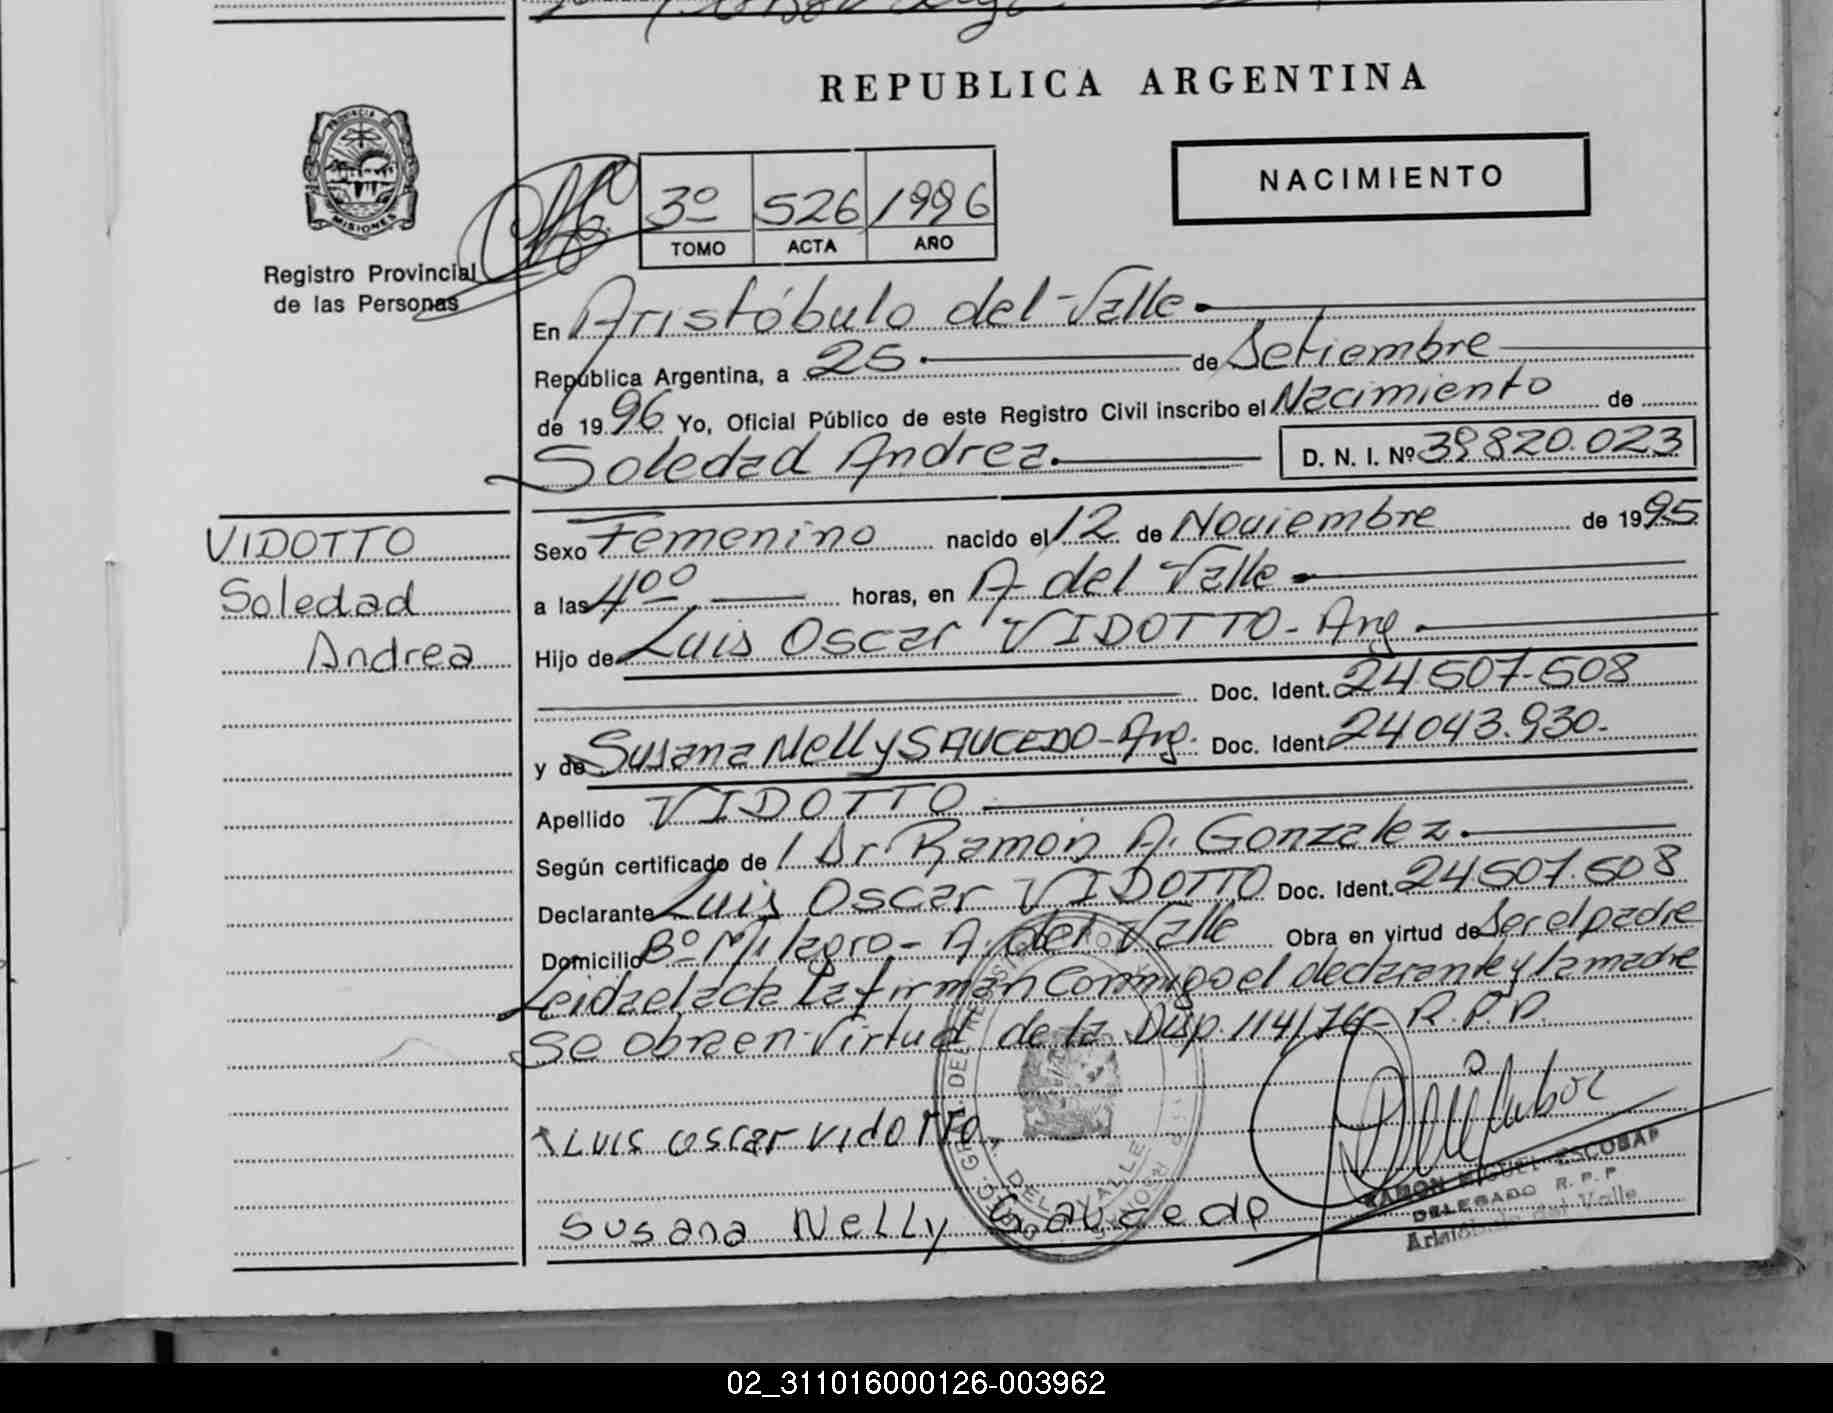 REPUBLICA ARGENTINA
PROVINCIA DE
MISIONES
Registro Provincial
de las Personas
NACIMIENTO
3º 526 1996
TOMO ACTA AÑO
En Aristóbulo del Valle
República Argentina, a 25 de Setiembre
de 1996 Yo, Oficial Público de este Registro Civil inscribo el Nacimiento de
Soledad Andrea. D. N. I. Nº 39820.023
VIDOTTO
Soledad
Andrea
Sexo Femenino nacido el 12 de Noviembre de 1995
a las 4º⁰ horas, en A del Valle
Hijo de Luis Oscar VIDOTTO - Arg.
Doc. Ident. 24507.508
y de Susana Nelly SAUCEDO - Arg. Doc. Ident. 24043.930.
Apellido VIDOTTO
Según certificado de Dr. Ramón A. Gonzalez.
Declarante Luis Oscar VIDOTTO Doc. Ident. 24507.508
Domicilio Bº Milagro - A. del Valle Obra en virtud de Ser el padre
Leida el acta la firman Conmigo el declarante y la madre
Se obra en Virtud de la Disp. 114/76 - R.P.P.
Luis oscar vidotto
Susana Nelly Saucedo
RAMON MIGUEL ESCOBAR
DELEGADO R. P. P
Aristóbulo del Valle
02_311016000126-003962